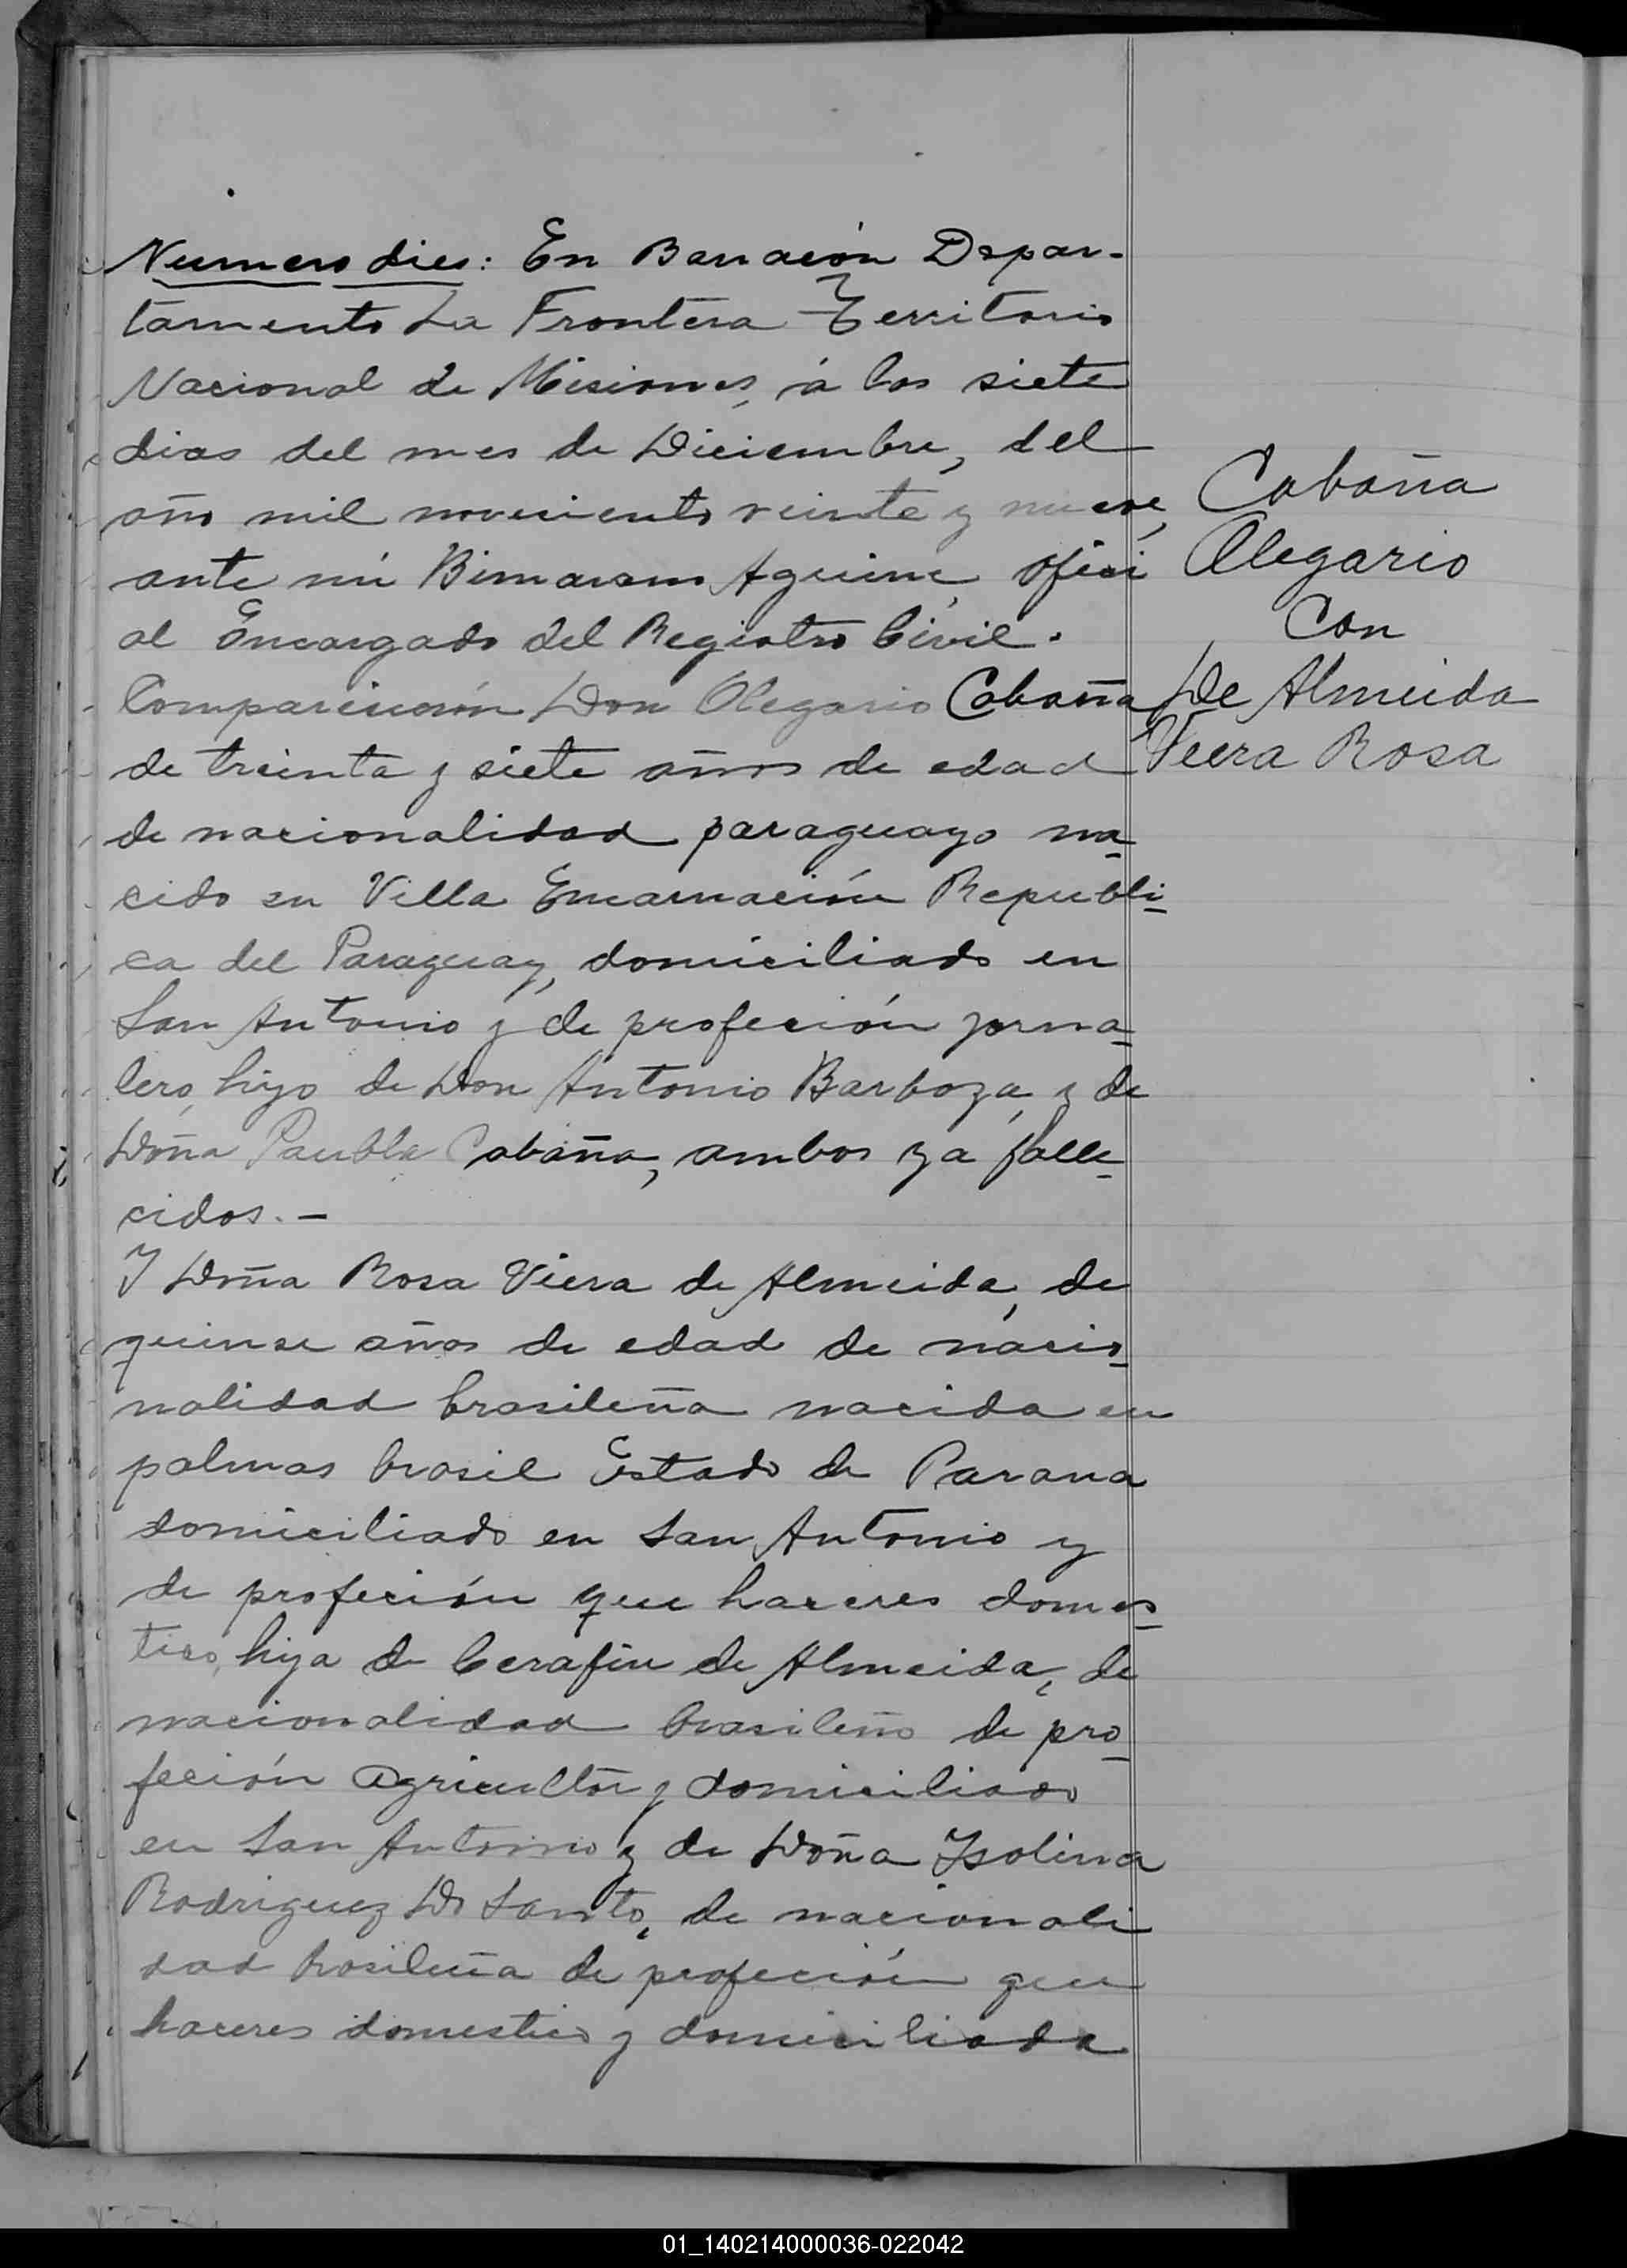 Numero dies: En Barracón Depar-
tamento La Frontera Territorio
Nacional de Misiones, á los siete
dias del mes de Diciembre, del
año mil novecientos veinte y nueve,
ante mi Aguirre, ofici
al Encargado del Registro Civil.
Comparicieron Don Olegario Cabaña
de treinta y siete años de edad
de nacionalidad paraguayo na-
cido en Villa Encarnación Republi-
ca del Paraguay, domiciliado en
San Antonio y de profeción jorna-
lero, hijo de Don Antonio Barboza, y de
Doña Paubla Cabaña, ambos ya falle-
cidos.-
Y Doña Rosa Viera de Almeida, de
quinse años de edad de nacio-
nalidad brasileña nacida en
palmas brasil Estado de Parana
domiciliado en San Antonio y
de profeción que haceres domes-
tico, hija de Cerafin de Almeida, de
nacionalidad brasileño de pro-
feción agricultor y domiciliado
en San Antonio y de Doña Ysolina
Rodriguez Do Santo, de nacionali
dad brasileña de profeción que
haceres domestico y domiciliada
Cabaña
Olegario
Con
De Almeida
Viera Rosa
01_140214000036-022042